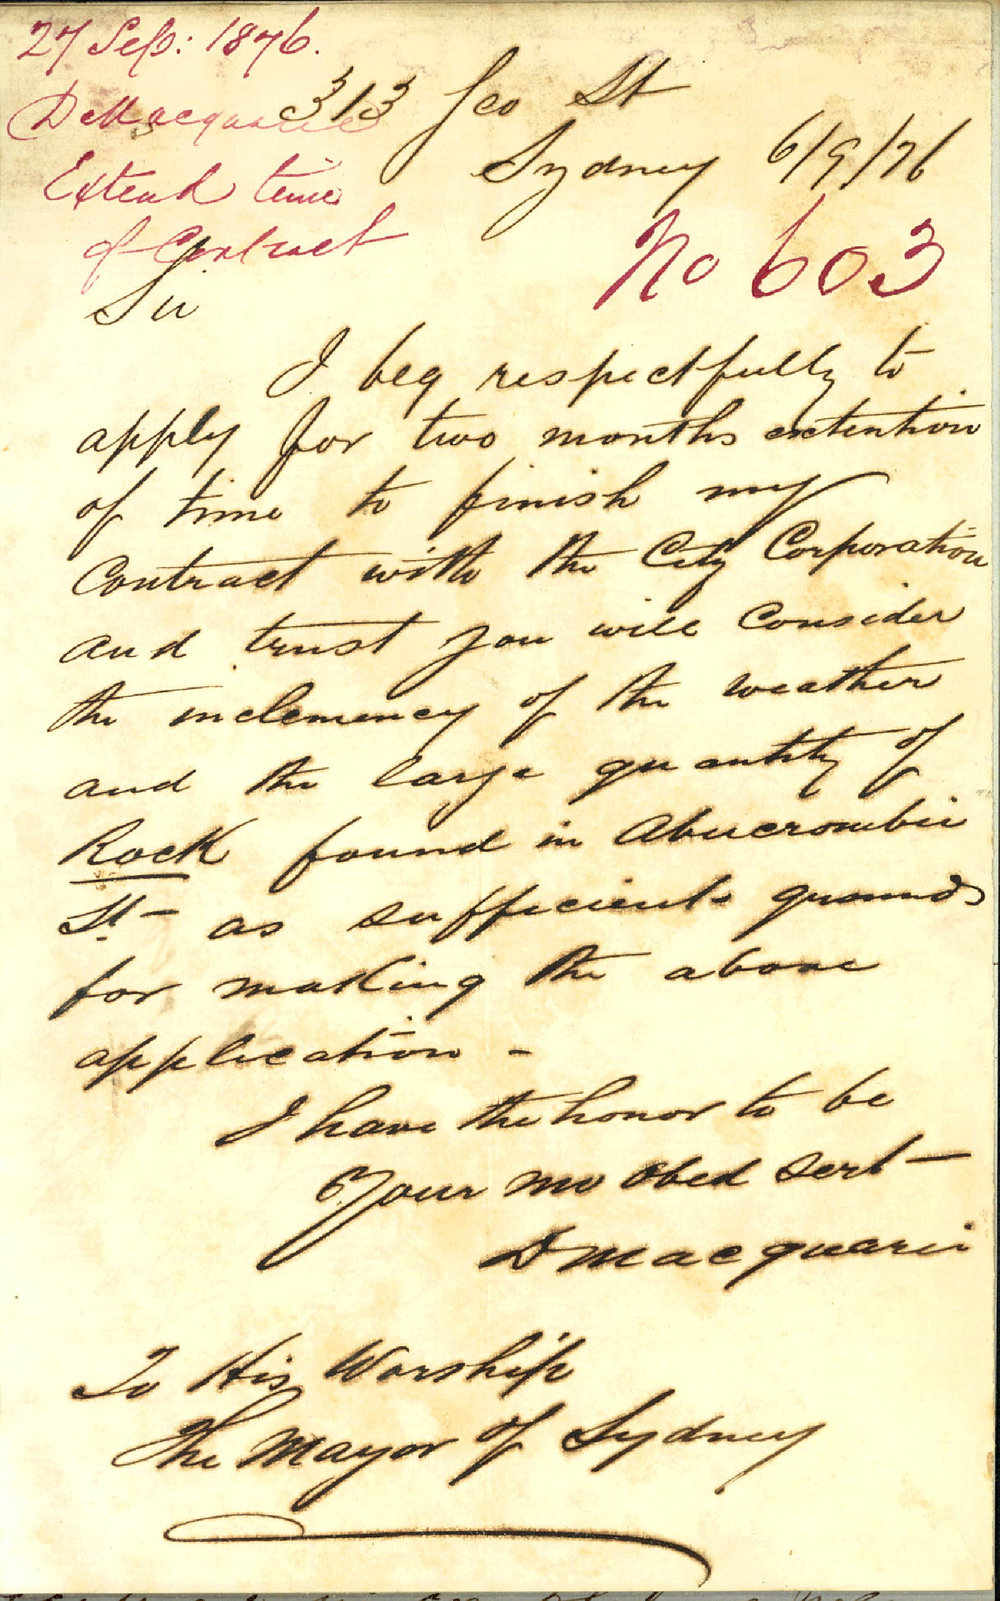 27 Sep: 1876.
D Macquarie
Extend time
of Contract
313 Geo St
Sydney 6/9/76
No 603
Sir
I beg respectfully to
apply for two months extention
of time to finish my
Contract with the City Corporation
and trust you will Consider
the inclemency of the weather
and the large quantity of
Rock found in Abucrombie
St- as sufficient grounds
for making the above
application -
I have the honor to be
Your mo Obed Sert-
D Macquarie
To His Worship
The Mayor of Sydney